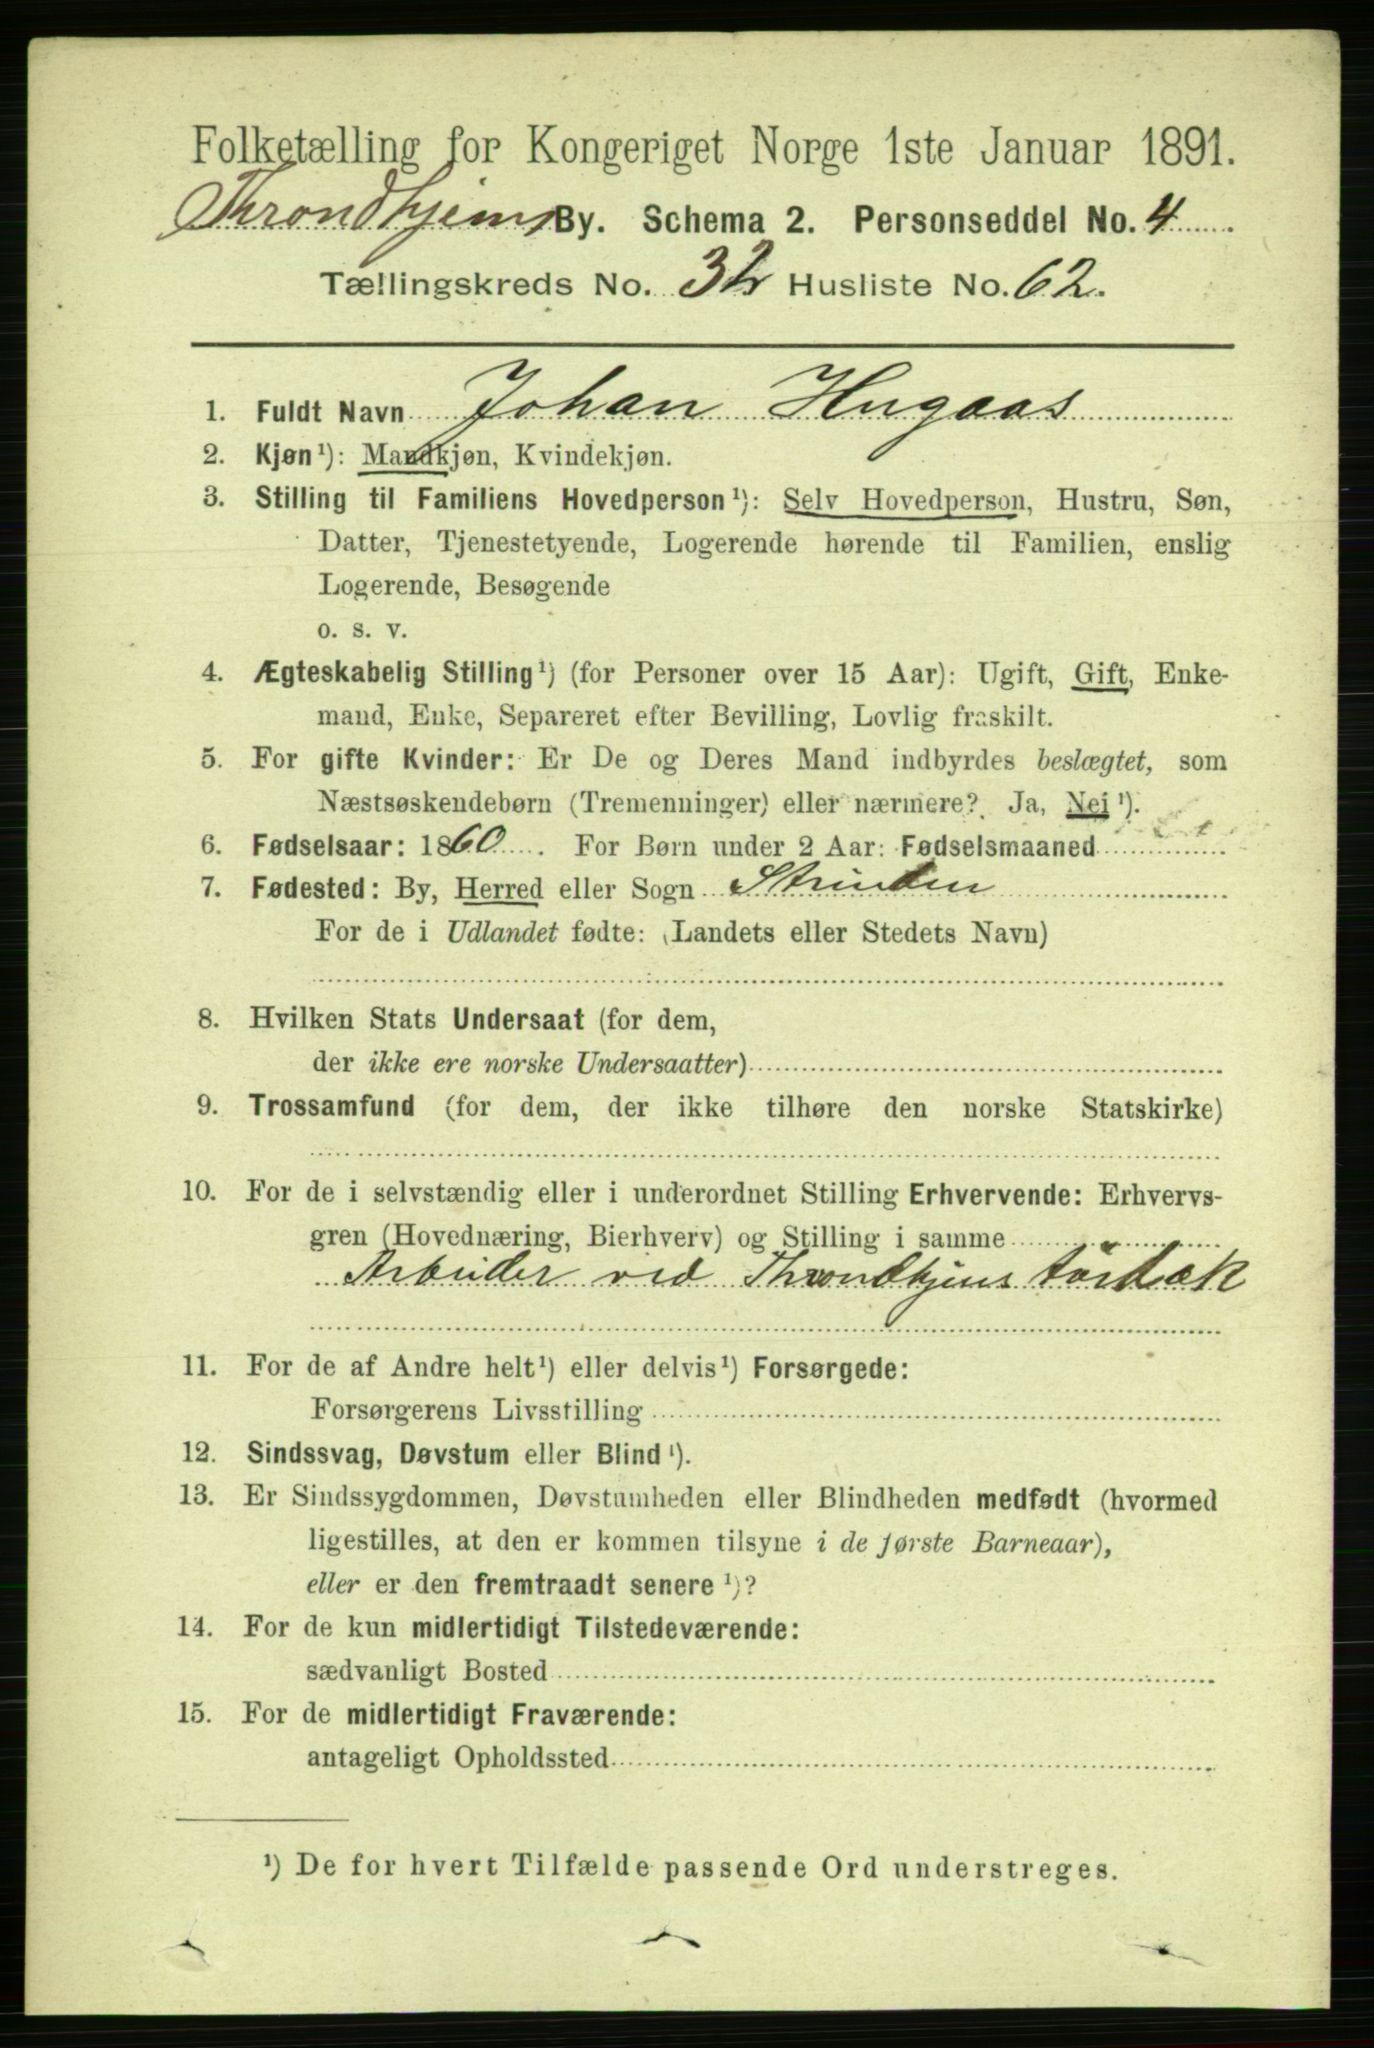 Folketælling for Kongeriget Norge 1ste Januar 1891.
Throndhjems By. Schema 2. Personseddel No. 4
Tællingskreds No. 32 Husliste No. 62.
1. Fuldt Navn Johan Hugaas
2. Kjøn¹): Mandkjøn, Kvindekjøn.
3. Stilling til Familiens Hovedperson¹): Selv Hovedperson, Hustru, Søn,
Datter, Tjenestetyende, Logerende hørende til Familien, enslig
Logerende, Besøgende
o. s. v.
4. Ægteskabelig Stilling¹) (for Personer over 15 Aar): Ugift, Gift, Enke-
mand, Enke, Separeret efter Bevilling, Lovlig fraskilt.
5. For gifte Kvinder: Er De og Deres Mand indbyrdes beslægtet, som
Næstsøskendebørn (Tremenninger) eller nærmere? Ja, Nei¹).
6. Fødselsaar: 1860. For Børn under 2 Aar: Fødselsmaaned
7. Fødested: By, Herred eller Sogn Strinden
For de i Udlandet fødte: (Landets eller Stedets Navn)
8. Hvilken Stats Undersaat (for dem,
der ikke ere norske Undersaatter)
9. Trossamfund (for dem, der ikke tilhøre den norske Statskirke)
10. For de i selvstændig eller i underordnet Stilling Erhvervende: Erhvervs-
gren (Hovednæring, Bierhverv) og Stilling i samme
Arbeider ved Throndhjems
11. For de af Andre helt¹) eller delvis¹) Forsørgede:
Forsørgerens Livsstilling
12. Sindssvag, Døvstum eller Blind¹).
13. Er Sindssygdommen, Døvstumheden eller Blindheden medfødt (hvormed
ligestilles, at den er kommen tilsyne i de første Barneaar),
eller er den fremtraadt senere¹)?
14. For de kun midlertidigt Tilstedeværende:
sædvanligt Bosted
15. For de midlertidigt Fraværende:
antageligt Opholdssted
¹) De for hvert Tilfælde passende Ord understreges.